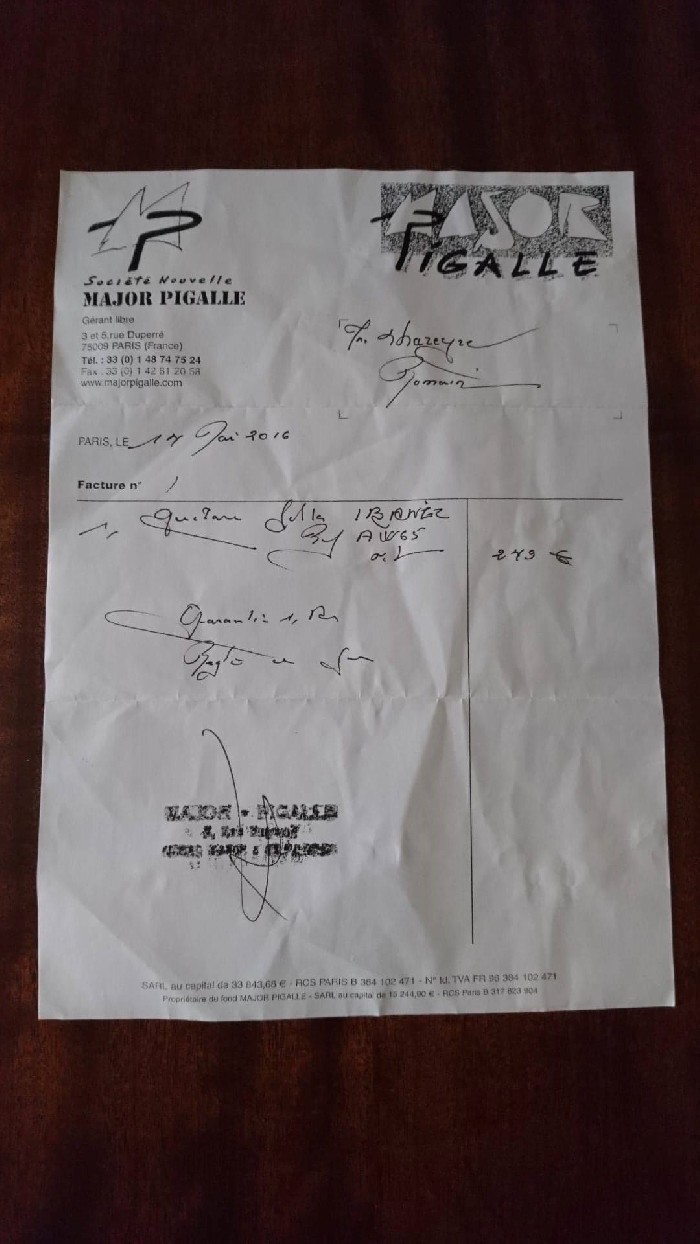 MP
Société Nouvelle
MAJOR PIGALLE
Gérant libre
3 et 5, rue Duperré
75009 PARIS (France)
Tél. : 33 (0) 1 48 74 75 24
Fax : 33 (0) 1 42 81 20 58
www.majorpigalle.com
MAJOR
PIGALLE
Romain
PARIS, LE 17 Mai 2016
Facture n° /
1 Guitare Folk IBANEZ
Ref AW65
279 €
Garantie 1 An
MAJOR - PIGALLE
SARL au capital de 33 843,68 € - RCS PARIS B 384 102 471 - N° Id. TVA FR 98 384 102 471
Propriétaire du fond MAJOR PIGALLE - SARL au capital de 15 244,90 € - RCS Paris B 317 823 904